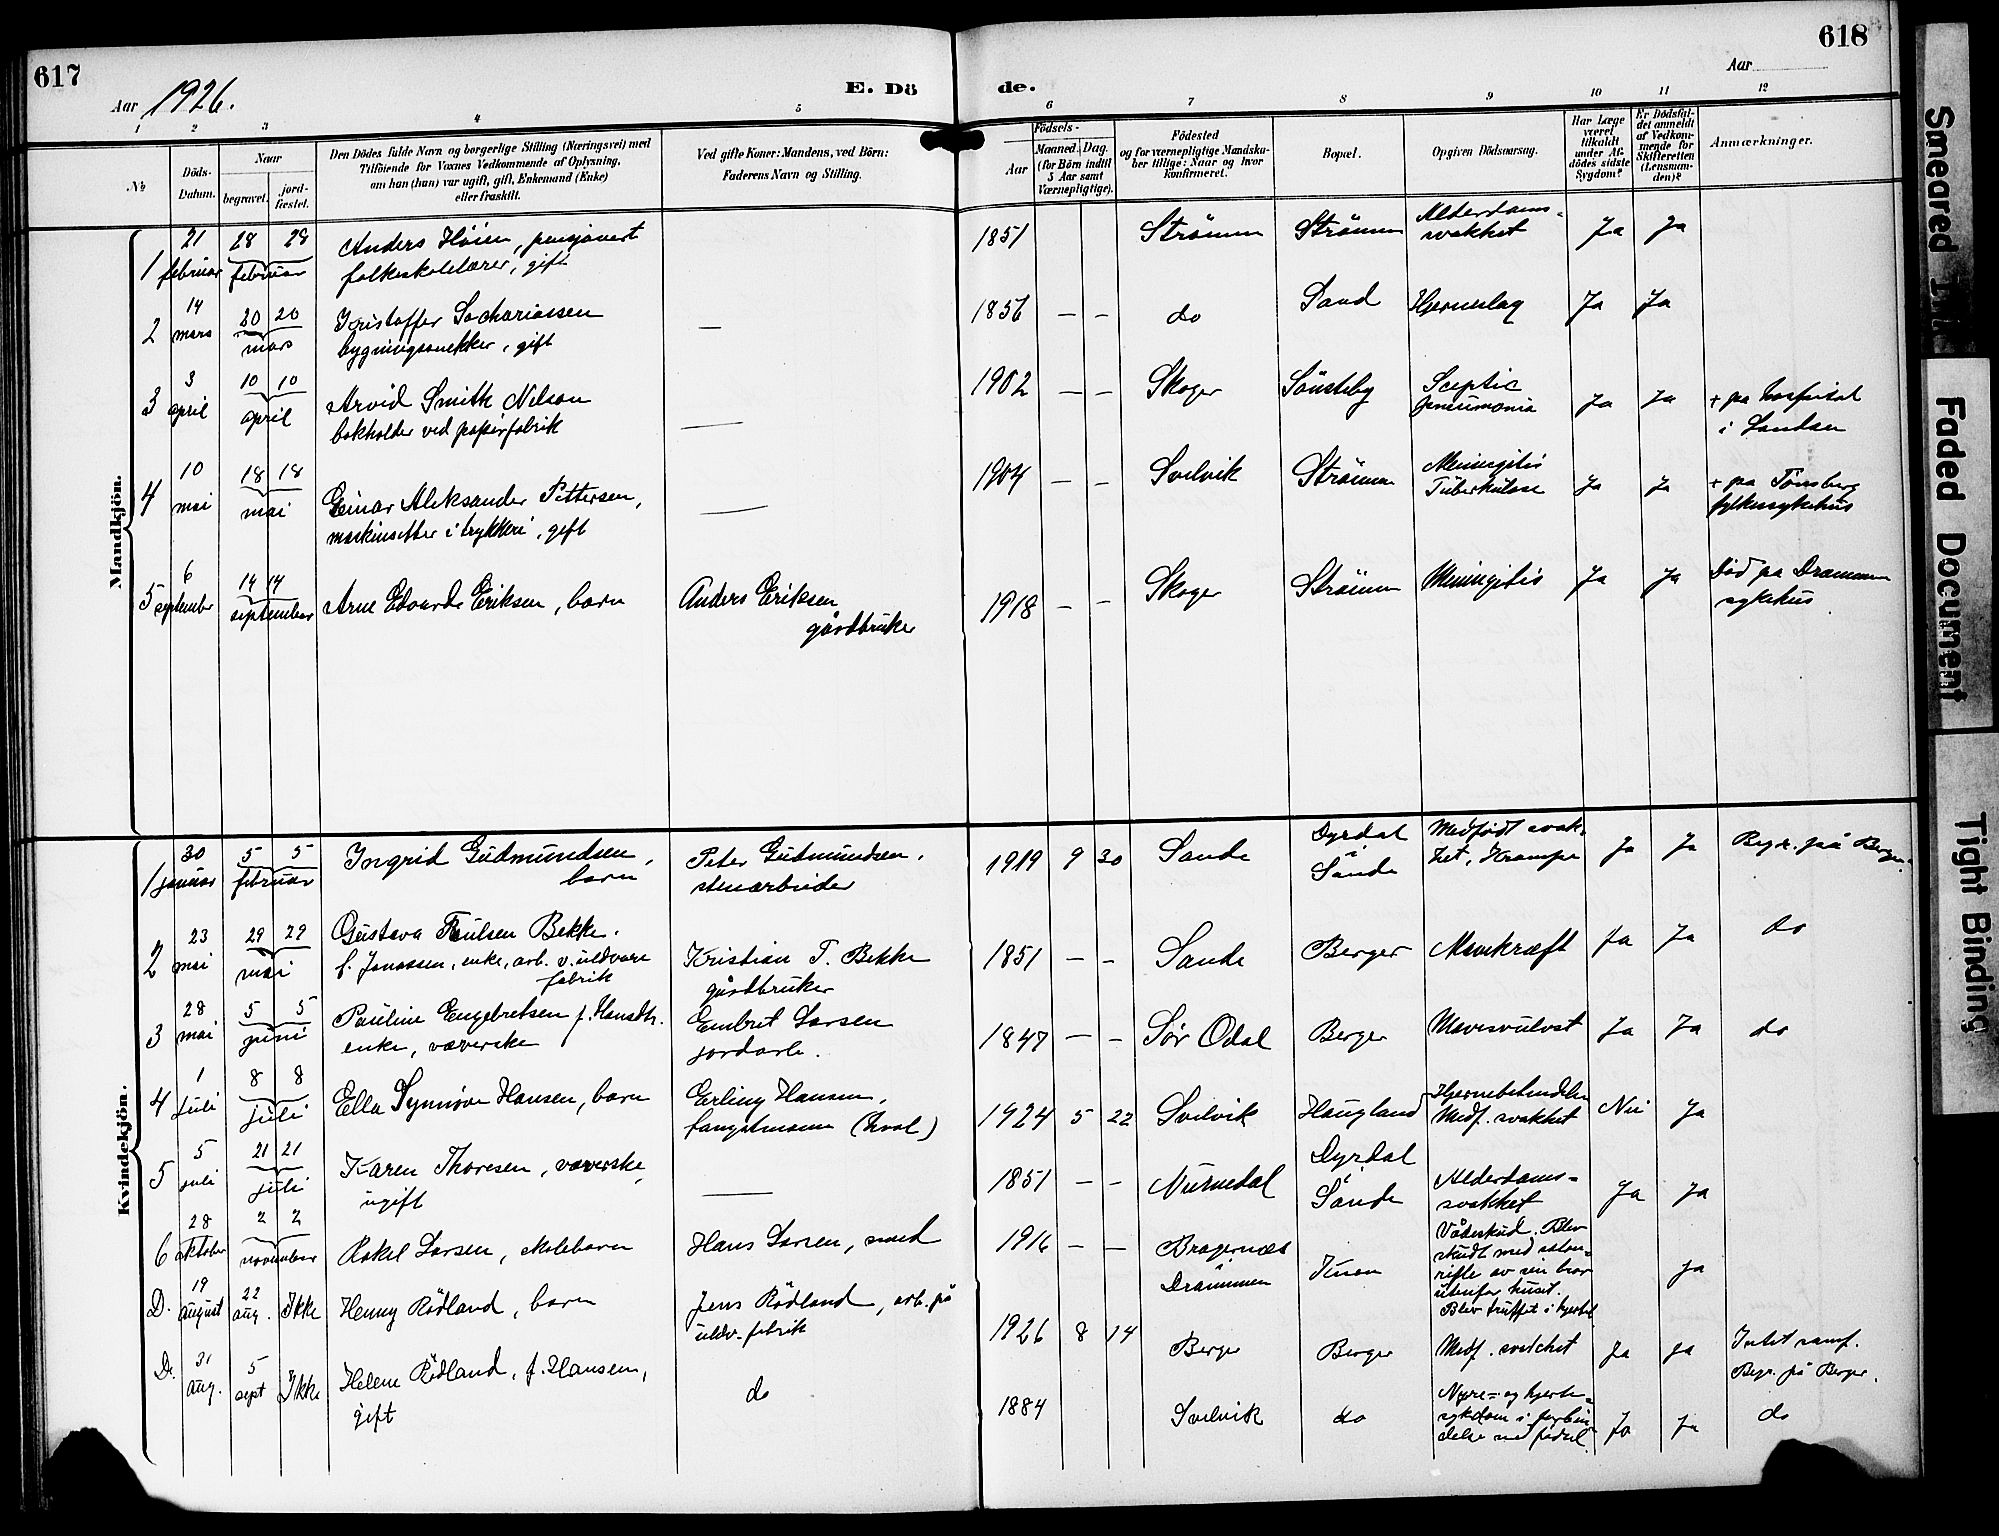 617
618
Aar 1926.
E. Dö
de.
Aar
1
2
3
4
5
6
7
8
9
10
11
12
№
Döds-
Datum.
Naar
begravet.
jord-
fæstet.
Den Dödes fulde Navn og borgerlige Stilling (Næringsvei) med
Tilföiende for Voxnes Vedkommende af Oplysning,
om han (hun) var ugift, gift, Enkemand (Enke)
eller fraskilt.
Ved gifte Koner: Mandens, ved Börn:
Faderens Navn og Stilling.
Födsels-
Aar
Maaned.
Dag.
(for Börn indtil
5 Aar samt
Værnepligtige).
Födested
og for værnepligtige Mandska-
ber tillige: Naar og hvor
Konfirmeret.
Bopæl.
Opgiven Dödsaarsag.
Har Læge
været
tilkaldt
under Af-
dödes sidste
Sygdom?
Er Dödsfal-
det anmeldt
af Vedkom-
mende for
Skifteretten
(Lensman-
den)?
Anmærkninger.
Mandkjön.
1
21
februar
28 28
februar
Anders Höien, pensjonert
folkeskolelærer, gift
1851
Strömm
Strömm
Alderdoms-
svakhet
Ja
Ja
2
14
mars
20 20
mars
Kristoffer Sachariassen
bygningssnekker, gift
—
1856
— —
do
Sand
Hjerneslag
Ja
Ja
3
3
april
10 10
april
Arvid Smith Nelson
bokholder ved papirfabrik
—
1902
— —
Skoger
Sönsteby
Sceptic
pneumonia
Ja
Ja
+ på hospital
i London
4
10
mai
18 18
mai
Einar Aleksander Pettersen,
maskinsetter i trykkeri, gift
—
1904
— —
Svelvik
Strömm
Meningitis
Tuberkulose
Ja
Ja
+ på Tönsberg
fylkessykehus
5
6
september
14 14
september
Arne Edvards Eriksen, barn
Anders Eriksen
gårdbruker
1918
— —
Skoger
Strömm
Meningitis
Ja
Ja
Död på Drammen
sykehus
Kvindekjön.
1
30
januar
5 5
februar
Ingrid Gudmundsen,
barn
Peter Gudmundsen.
stenarbeider
1919
9
30
Sande
Dyrdal
i
Sande
Medfödt svak-
het, Krampe
Ja
Ja
Begr. på Berger.
2
23
mai
29 29
mai
Gustava Paulsen Bekke.
f. Jonassen, enke, arb. v. uldvare
fabrik
Kristian T. Bekke
gårdbruker
1851
— —
Sande
Berger
Mavekræft
Ja
Ja
do
3
28
mai
5 5
juni
Pauline Engebretsen f. Hansdtr.
enke, væverske
Embret Larsen
jordarb.
1847
— —
Sör Odal
Berger
Mavesvulst
Ja
Ja
do
4
1
juli
8 8
juli
Ella Synnöve Hansen, barn
Erling Hansen,
fangstmann (hval)
1924
5
22
Svelvik
Haugland
Medf. svakhet
Nei
Ja
5
5
juli
21 21
juli
Karen Thoresen, væverske,
ugift
—
1851
— —
Numedal
Dyrdal
i
Sande
Alderdoms-
svakhet
Ja
Ja
6
28
oktober
2 2
november
Rakel Larsen, skolebarn
Hans Larsen, smed
1916
— —
Bragernæs
Drammen
Vådeskud. Blev
skudt med salon-
rifle av sin bror
utenfor huset.
Blev truffet i hjertet
Ja
D.
19
august
22
aug.
Ikke
Henny Rödland, barn
Jens Rödland, arb. på
uldv. fabrik
1926
8
14
Berger
Berger
Medf. svakhet
Ja
Ja
Intet samf.
Begr. på Berger.
D.
31
aug.
5
sept
Ikke
Helene Rödland, f. Hansen,
gift
do
1884
Svelvik
do
Nyre- og hjerte-
sykdom i forbin-
delse med födsel.
Ja
Ja
do
Smeared Ink
Faded Document
Tight Binding